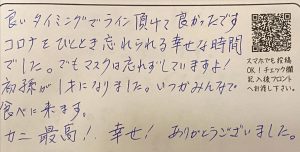 良いタイミングでライン頂けて良かったです
コロナをひととき忘れられる幸せな時間
でした。でもマスクは忘れずしていますよ!
初孫が1才になりました。いつかみんなで
食べに来ます。
カニ最高! 幸せ! ありがとうございました。
スマホでも投稿
OK!チェック欄
記入後フロント
へお渡し下さい。